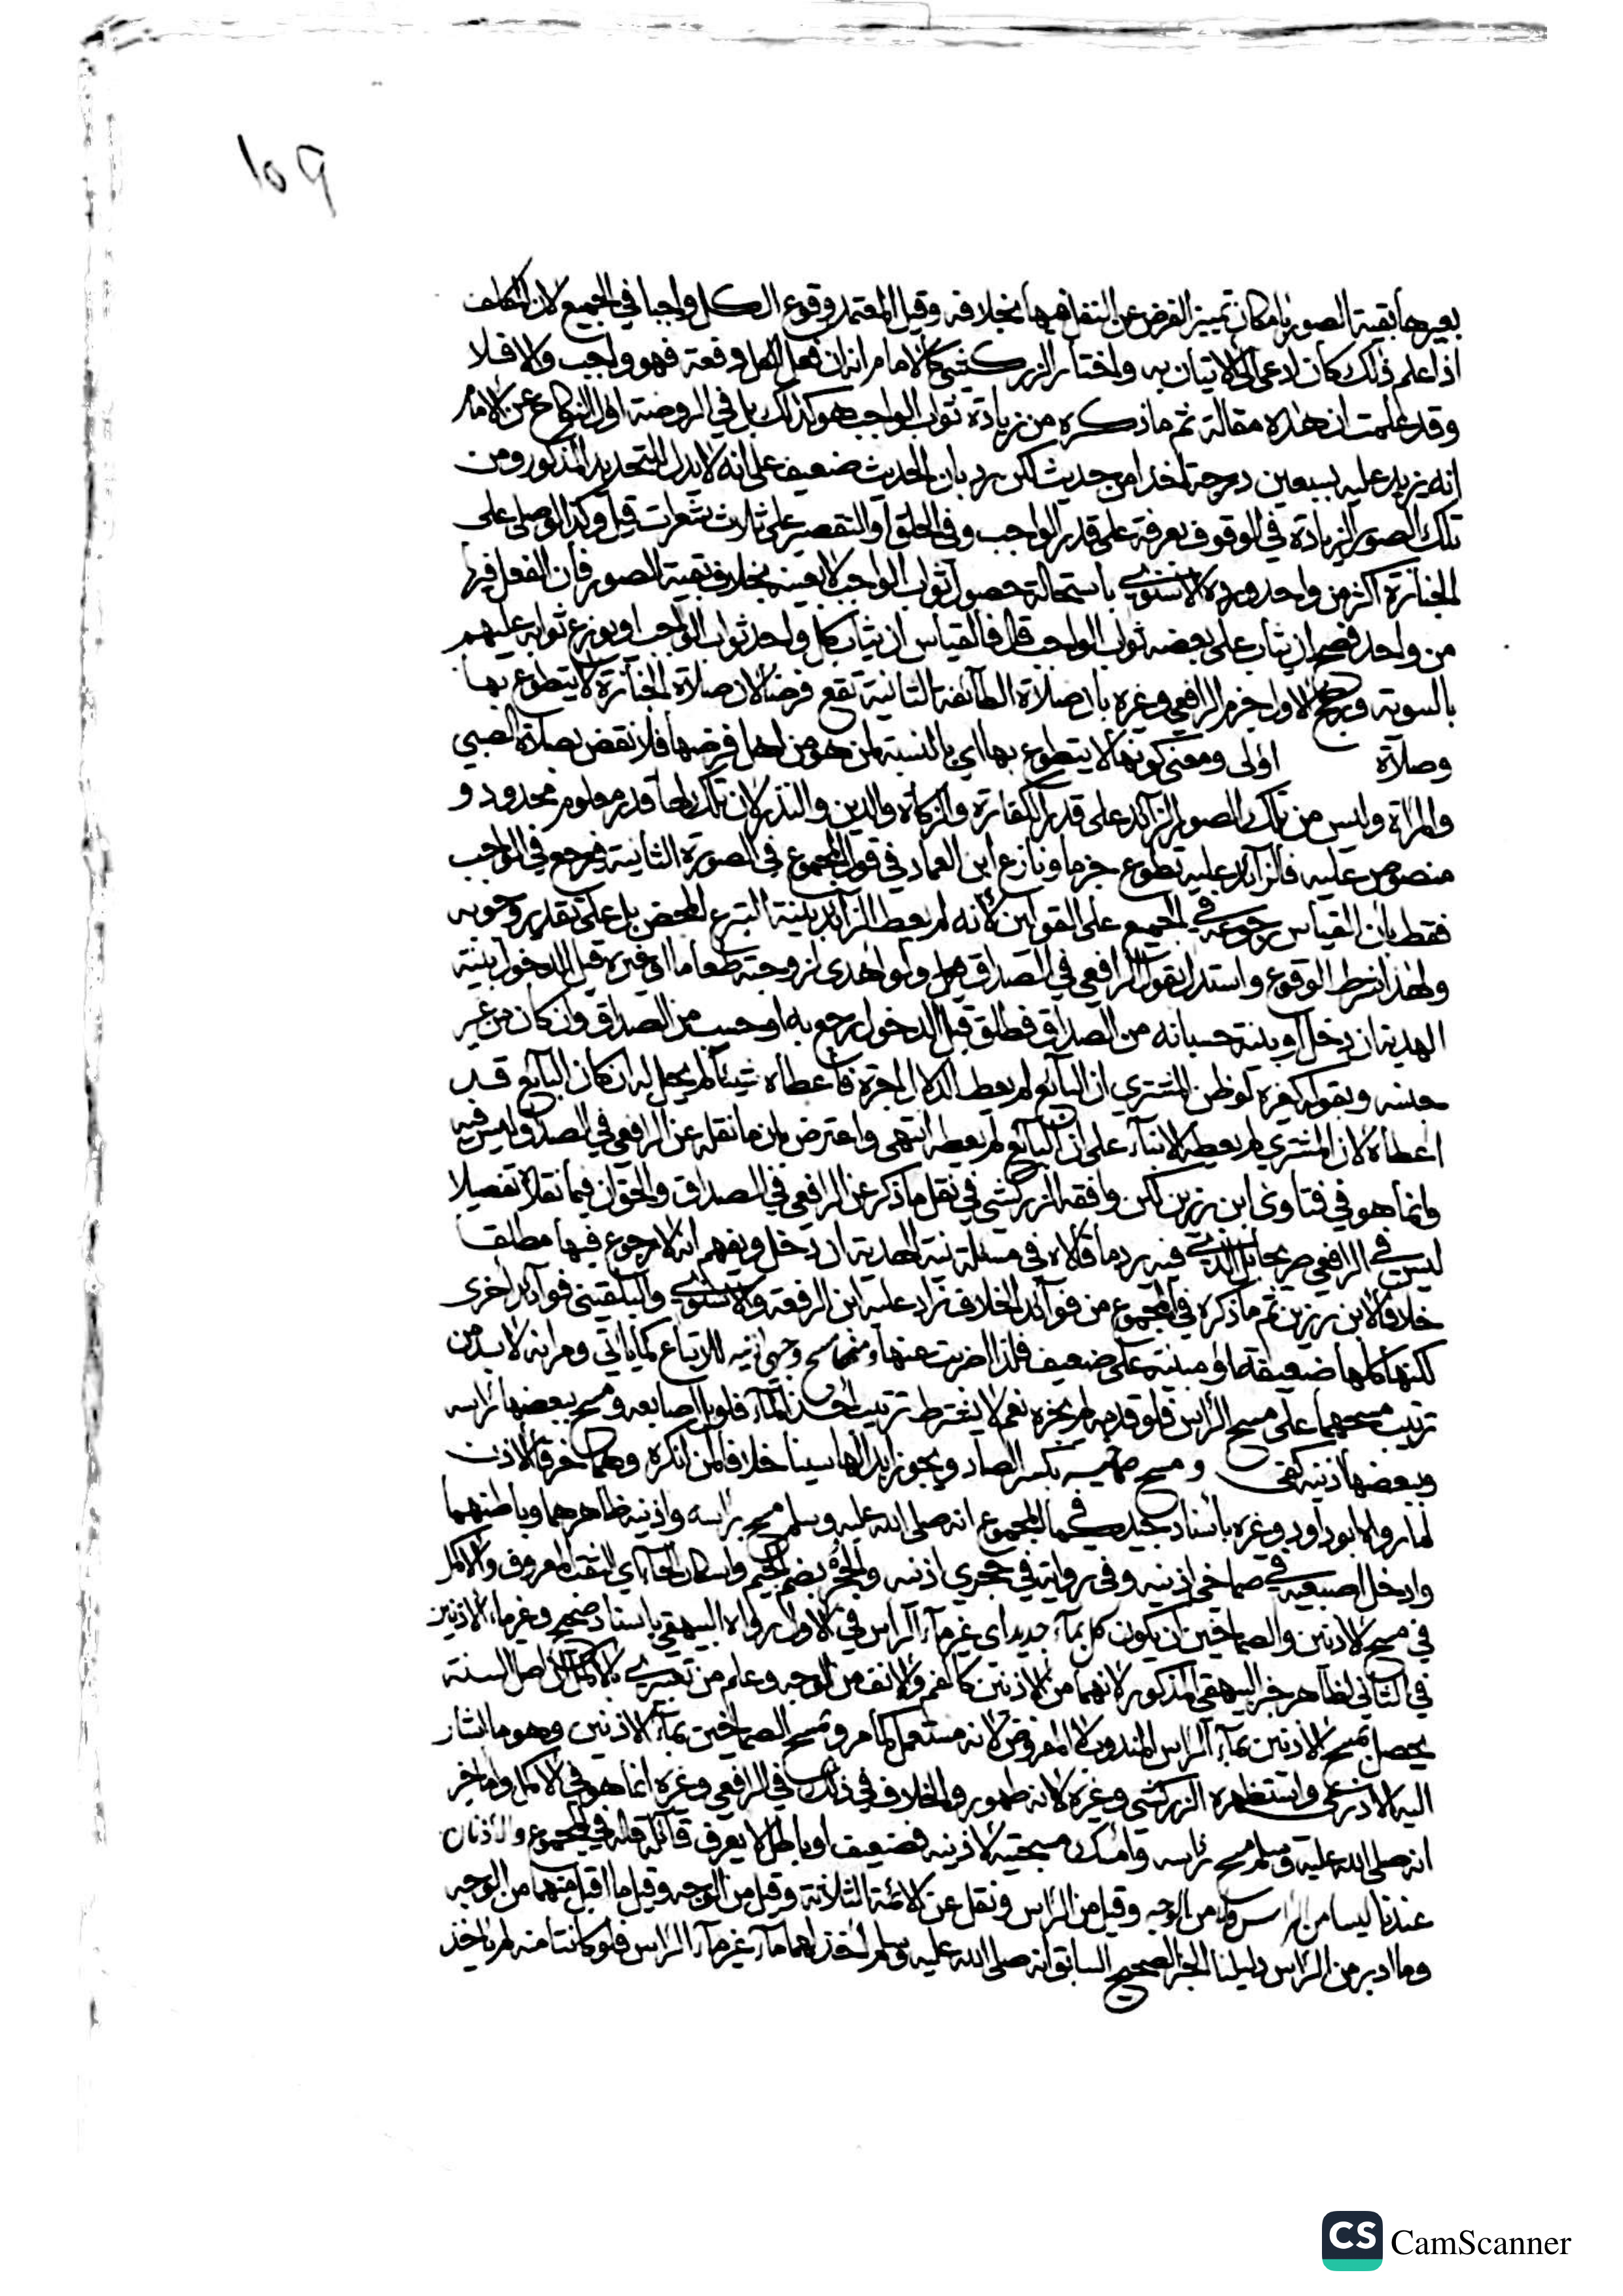 ١٥٩
بعيرها بقية الصور بامكان تمييز الفرض عن النفل فيها بخلافه وقيل المعتمد وقوع الكل واجبا في الجميع لان المكلف
اذا علم ذلك كان ادعى الى الاتيان به واختار الزركشي كالامام انه ان فعل الكل دفعة فهو واجب والا فلا
وقد علمت ان هذه مقالة ثم ما ذكره من زيادة ثواب الواجب هو كذلك بل في الروضة اول النكاح عن الامام
انه يزيد عليه بسبعين درجة اخذا من حديث لكن رد بان الحديث ضعيف على انه لا يدل للتحديد المذكور ومن
تلك الصور الزيادة في الوقوف بعرفة على قدر الواجب وفي الحلق او التقصير على ثلاث شعرات قيل وكذا لو صلى على
الجنازة اكثر من واحد ورده الاسنوي باستحالة حصول ثواب الواجب لا بعينه بخلاف بقية الصور فان الفعل فيها
من واحد فصح ان يثاب على بعضه ثواب الواجب قال فالقياس ان يثاب كل واحد ثواب الواجب او يوزع ثوابه عليهم
بالسوية ورجح الاول جزم الرافعي وغيره بان صلاة الطائفة الثانية تقع فرضا لان صلاة الجنازة لا يتطوع بها
وصلاة اولى ومعنى كونها لا يتطوع بها اي بالنسبة لمن هو من اهل فرضها فلا نقض بصلاة الصبي
والمراة وليس من تلك الصور الزائد على قدر الكفارة والزكاة والدين والنذر لان تلك لها قدر معلوم محدود و
منصوص عليه فالزائد عليه تطوع جزما ونازع ابن العماد في قول المجموع في الصورة الثانية فيرجع في الواجب
فقط بان القياس رجوعه في الجميع على القولين لانه لم يعط الزائد بنية التبرع المحض بل على تقدير وجوبه
ولهذا شرط الوقوع واستدل بقول الرافعي في الصداق ولو اهدى لزوجته طعاما او غيره قبل الدخول بنية
الهدية ان دخل او بنية حسبانه من الصداق فطلق قبل الدخول رجع به او حسب من الصداق وان كان من غير
جنسه وبقوله كغيره لو ظن المشتري ان البائع لم يعط الدلال اجرة فاعطاه شيئا لم يحل له ان كان البائع قد
اعطاه لان المشتري لم يعطه الا بناء على ان البائع لم يعطه انتهى واعترض بان ما نقله عن الرافعي في الصداق ليس فيه
وانما هو في فتاوى ابن رزين لكن وافقه الزركشي في نقل ما ذكر عن الرافعي في الصداق والحق ان فيما نقلاه تفصيلا
ليس في الرافعي صريحا بل الذي فيه يرد ما قالاه في مسئلة نية الهدية ان دخل ويفهم انه لا رجوع فيها مطلقا
خلافا لابن رزين ثم ما ذكره في المجموع من فوائد الخلاف زاد عليه ابن الرفعة والاسنوي والبلقيني فوائد اخرى
لكنها كلها ضعيفة او مبنية على ضعيف فلذا اضربت عنها ومنها مسح وجهي اذنيه للاتباع كما ياتي ومر انه لا بد من
ترتيب مسحهما على مسح الراس فلو قدمه لم يجزه نعم لا يشترط ترتيب اخذ الماء فلو بل اصابعه ومسح ببعضها راسه
وببعضها اذنيه كفى ومسح صماخيه بكسر الصاد ويجوز ابدالها سينا خلافا لمن انكره وهما خرقا الاذن
لما رواه ابو داود وغيره باسناد جيد كما في المجموع انه صلى الله عليه وسلم مسح براسه واذنيه ظاهرهما وباطنهما
وادخل اصبعيه في صماخي اذنيه وفي رواية في جحري اذنيه والجحر بضم الجيم واسكان الحاء اي الثقب المعروف والاكمل
في مسح الاذنين والصماخين ان يكون كل بماء جديد اي غير ماء الراس في الاول رواه البيهقي باسناد صحيح وغير ماء الاذنين
في الثاني لظاهر خبر البيهقي المذكور لانهما من الاذنين كالفم والانف من الوجه وعلم من تعبيري بالاكمل ان اصل السنة
يحصل بمسح الاذنين بماء الراس المندوب لا المفروض لانه مستعمل كما مر وبمسح الصماخين بماء الاذنين وهو ما اشار
اليه الاذرعي واستظهره الزركشي وغيره لانه طهور والخلاف في ذلك في الرافعي وغيره انما هو في الاكمل واما خبر
انه صلى الله عليه وسلم مسح براسه وامسك مسبحتيه لاذنيه فضعيف او باطل لا يعرف قائله قاله في المجموع والاذنان
عندنا ليسا من الراس ولا من الوجه وقيل من الراس ونقل عن الائمة الثلاثة وقيل من الوجه وقيل ما اقبل منهما من الوجه
وما ادبر من الراس دليلنا الخبر الصحيح السابق انه صلى الله عليه وسلم اخذ لهما ماء غير ماء الراس فلو كانتا منه لم ياخذ
CS CamScanner